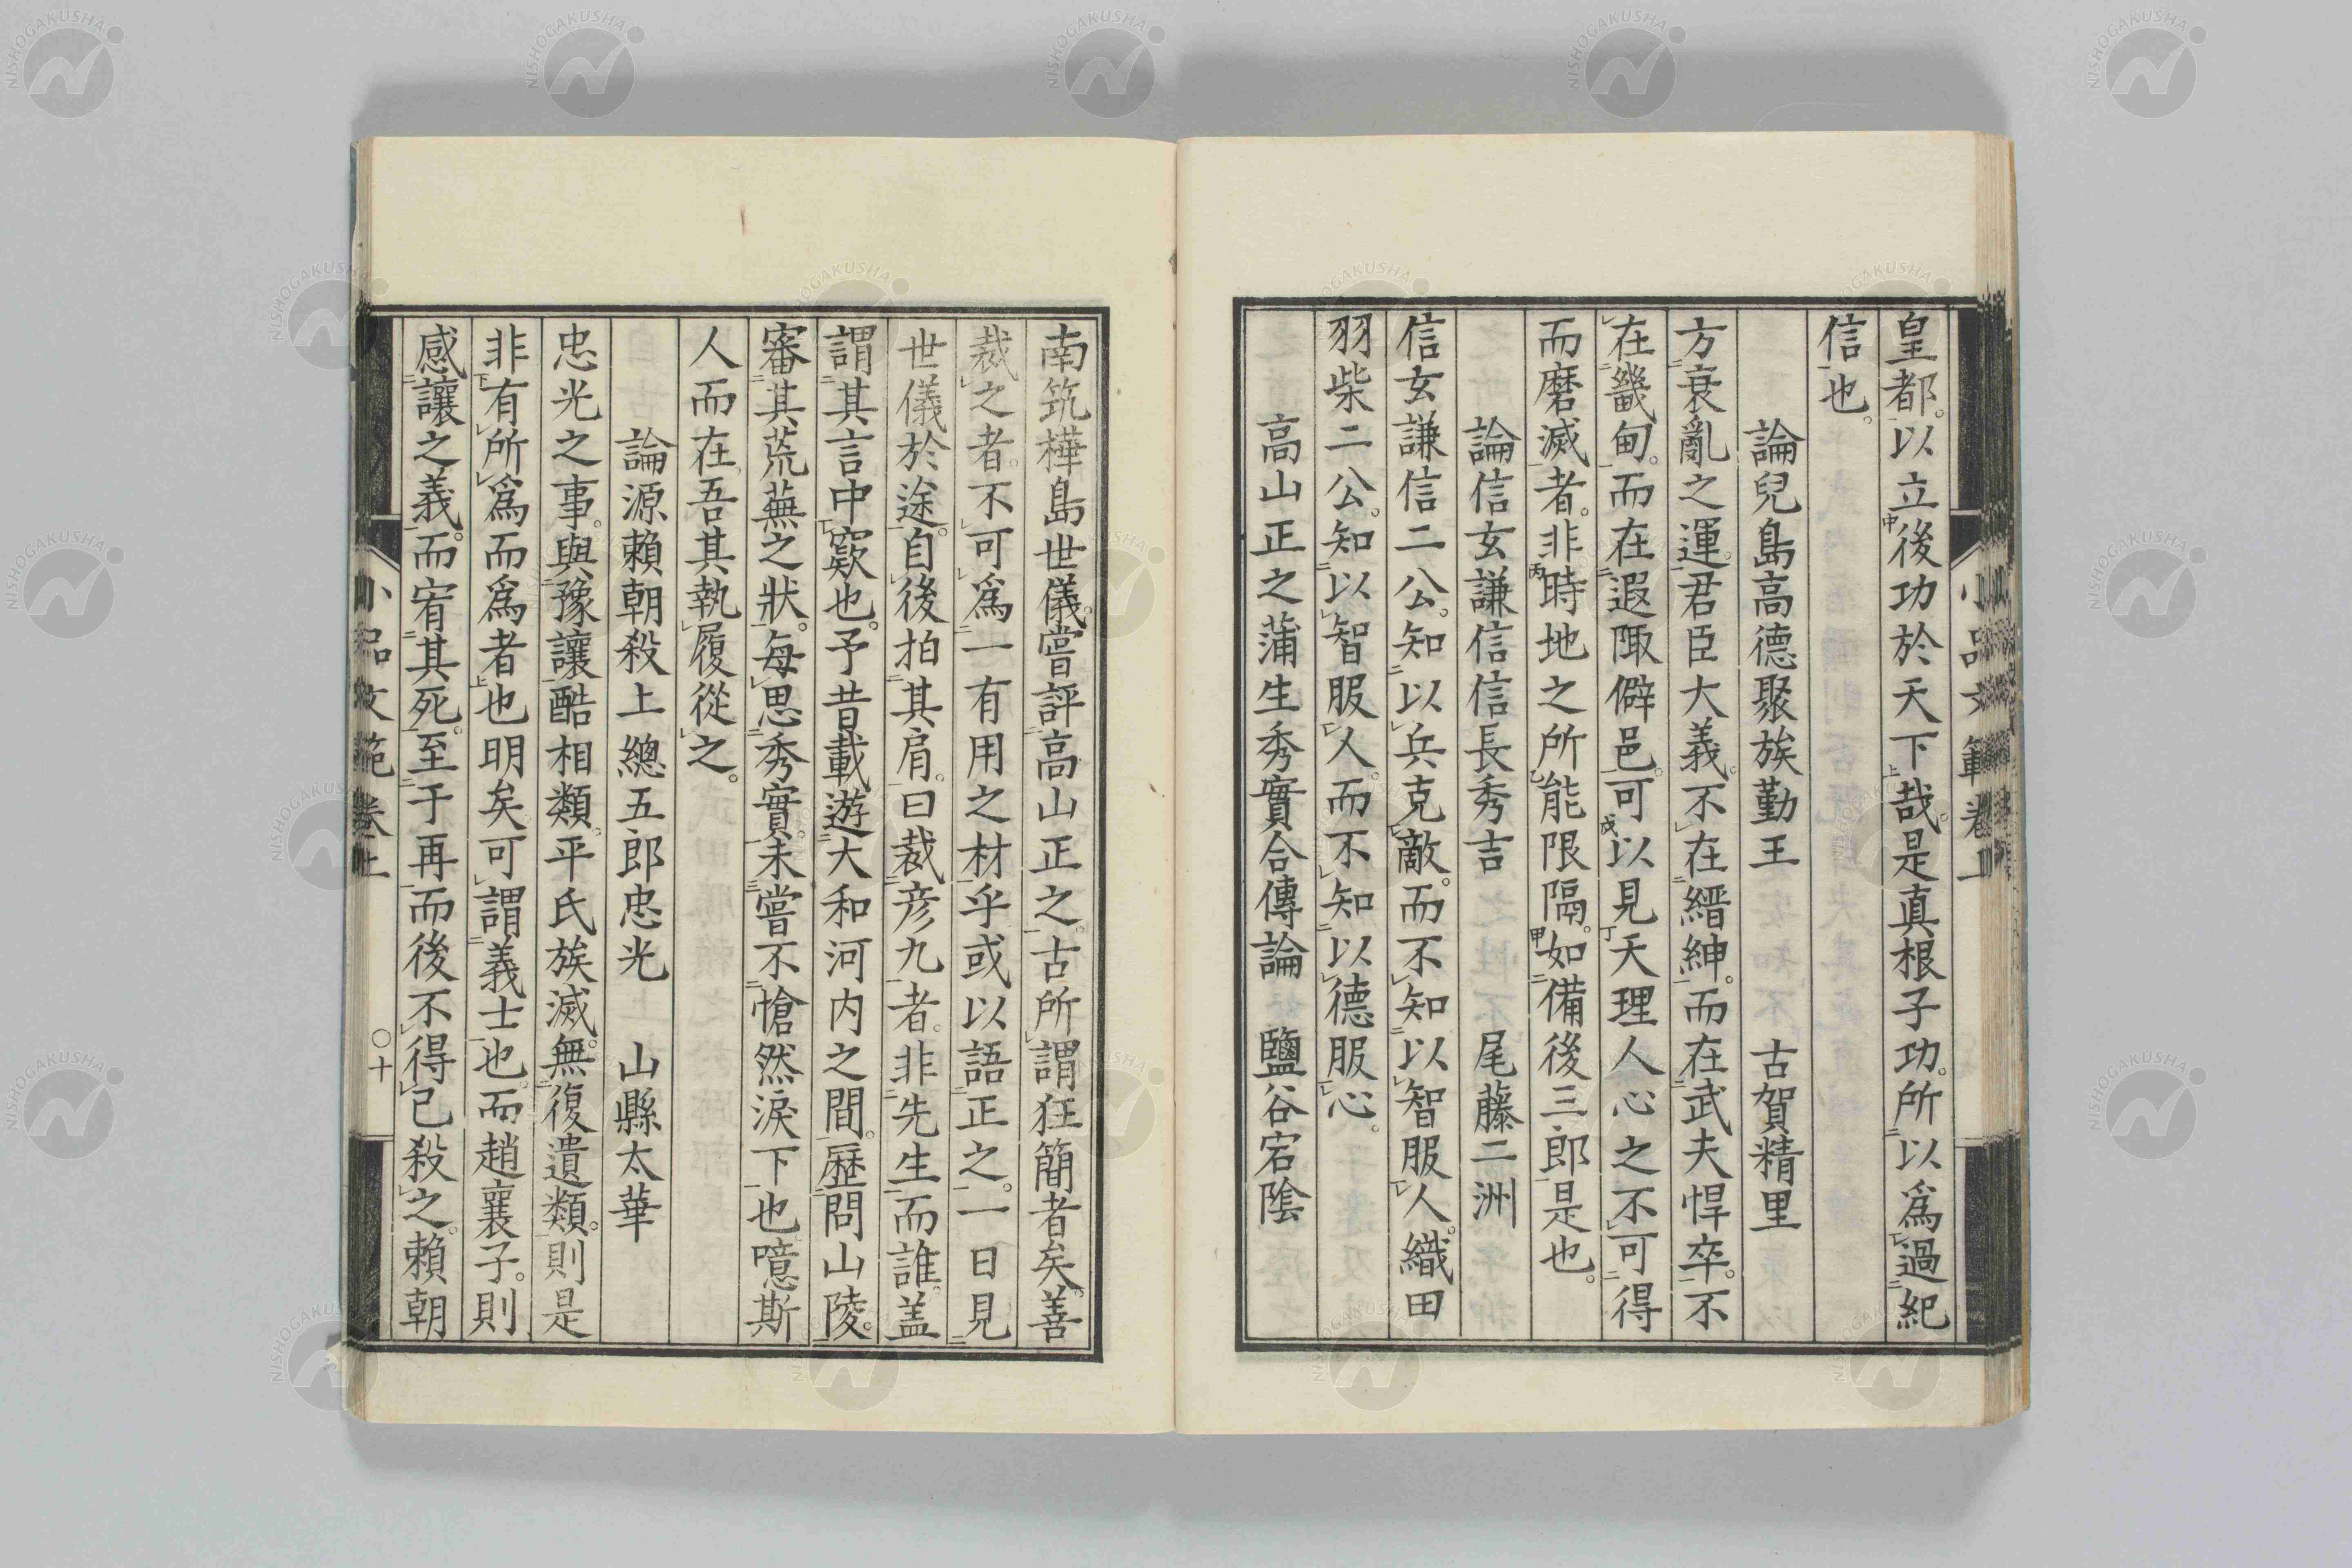 皇都。以立後功於天下哉。是真根子功。所以為過紀
信也。
論兒島高德聚族勤王　古賀精里
方衰亂之運。君臣大義。不在縉紳。而在武夫悍卒。不
在畿甸。而在遐陬僻邑。可以見天理人心之不可得
而磨滅者。非時地之所能限隔。如備後三郎是也。
論信玄謙信信長秀吉　尾藤二洲
信玄謙信二公。知以兵克敵。而不知以智服人。織田
羽柴二公。知以智服人。而不知以德服心。
高山正之蒲生秀實合傳論　鹽谷宕陰
南筑樺島世儀。嘗評高山正之。古所謂狂簡者矣。善
裁之者。不可為一有用之材乎。或以語正之。一日見
世儀於途。自後拍其肩。曰裁彥九者。非先生而誰。盖
謂其言中窾也。予昔載遊大和河内之間。歷問山陵。
審其荒蕪之狀。每思秀實。未嘗不愴然淚下也。噫斯
人而在。吾其執履從之。
論源賴朝殺上總五郎忠光　山縣太華
忠光之事。與豫讓酷相類。平氏族滅。無復遺類。則是
非有所爲而爲者也明矣。可謂義士也。而趙襄子。則
感讓之義。而宥其死。至于再而後不得已殺之。賴朝
小品文範卷上
〇十